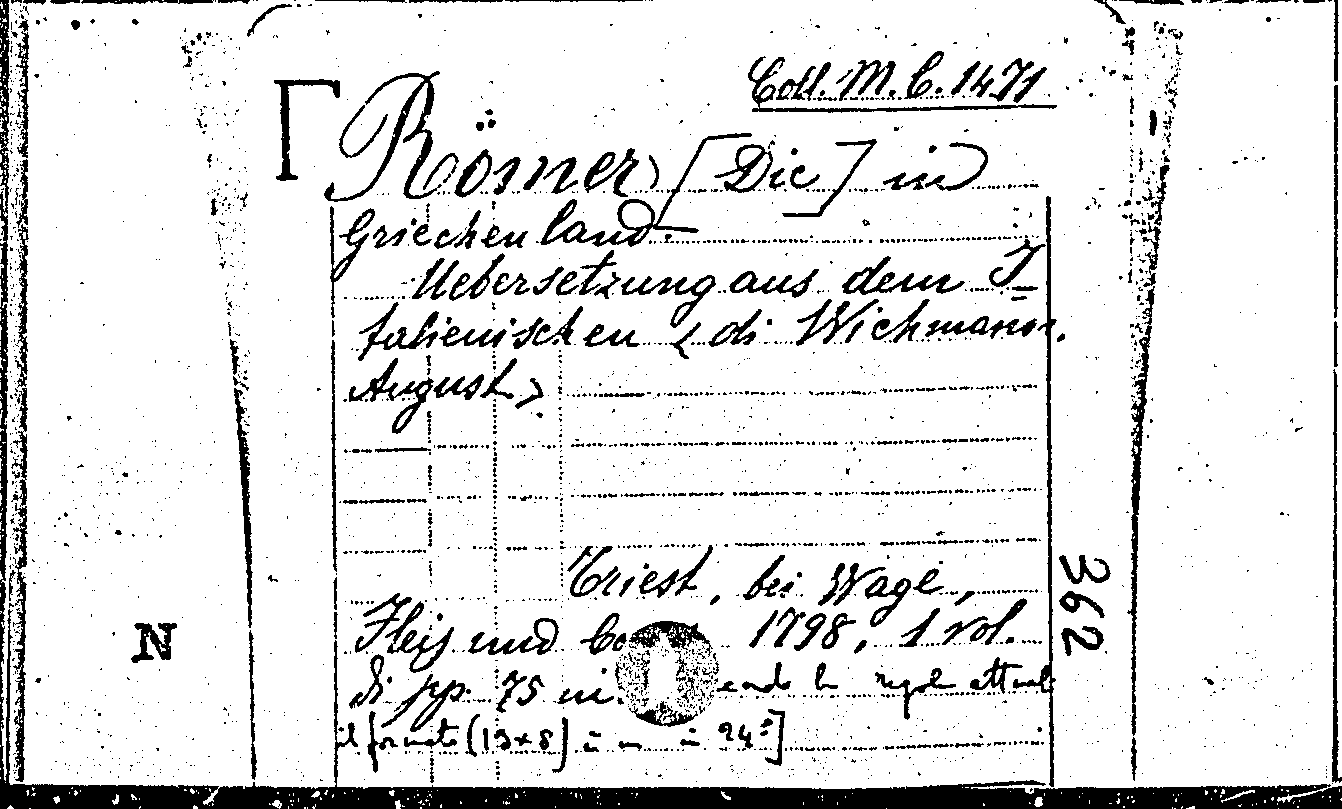 Coll. M. C. 1471
Römer [Die] in
Griechenland.—
Uebersetzung aus dem I-
talienischen < di Wichmann.
August>
Triest, bei Wage,
Fleis und 1798, 1 vol.
di pp. 75 in
il formato (13x8) è in 24°]
362
N